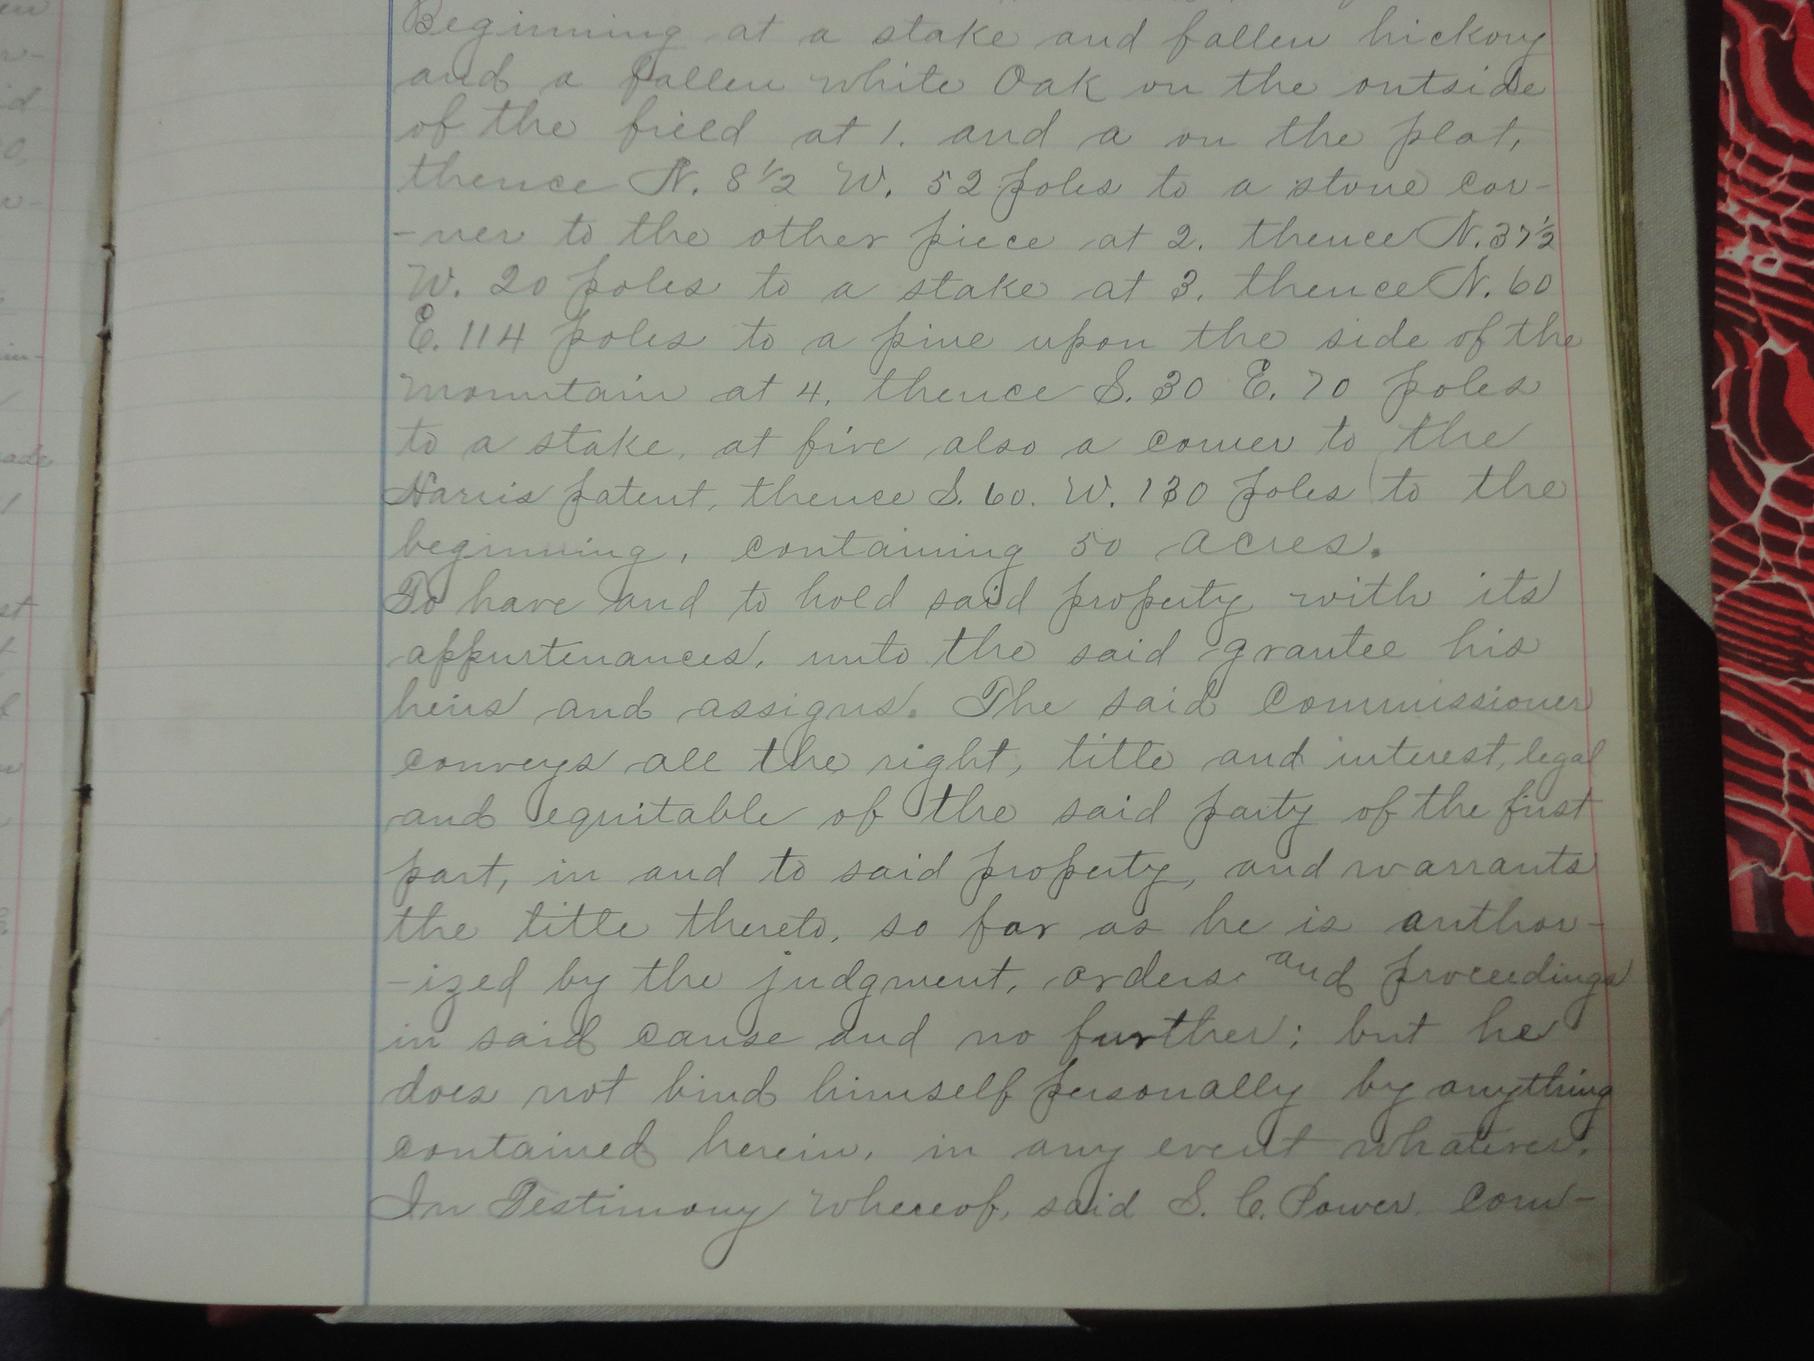 Beginning at a stake and fallen hickory
and a fallen white Oak on the outside
of the field at 1. and a on the plat,
thence N. 8 1/2 W. 52 poles to a stone cor-
-ner to the other piece at 2. thence N. 37 1/2
W. 20 poles to a stake at 3. thence N. 60
E. 114 poles to a pine upon the side of the
mountain at 4. thence S. 30 E. 70 poles
to a stake, at five also a corner to the
Harris patent, thence S. 60. W. 130 poles to the
beginning, containing 50 acres.
To have and to hold said property with its
appurtenances, unto the said grantee his
heirs and assigns. The said Commissioner
conveys all the right, title and interest, legal
and equitable of the said party of the first
part, in and to said property, and warrants
the title thereto, so far as he is author-
-ized by the judgment, orders and proceedings
in said cause and no further; but he
does not bind himself personally by anything
contained herein, in any event whatever.
In Testimony whereof, said S. C. Power. Com-